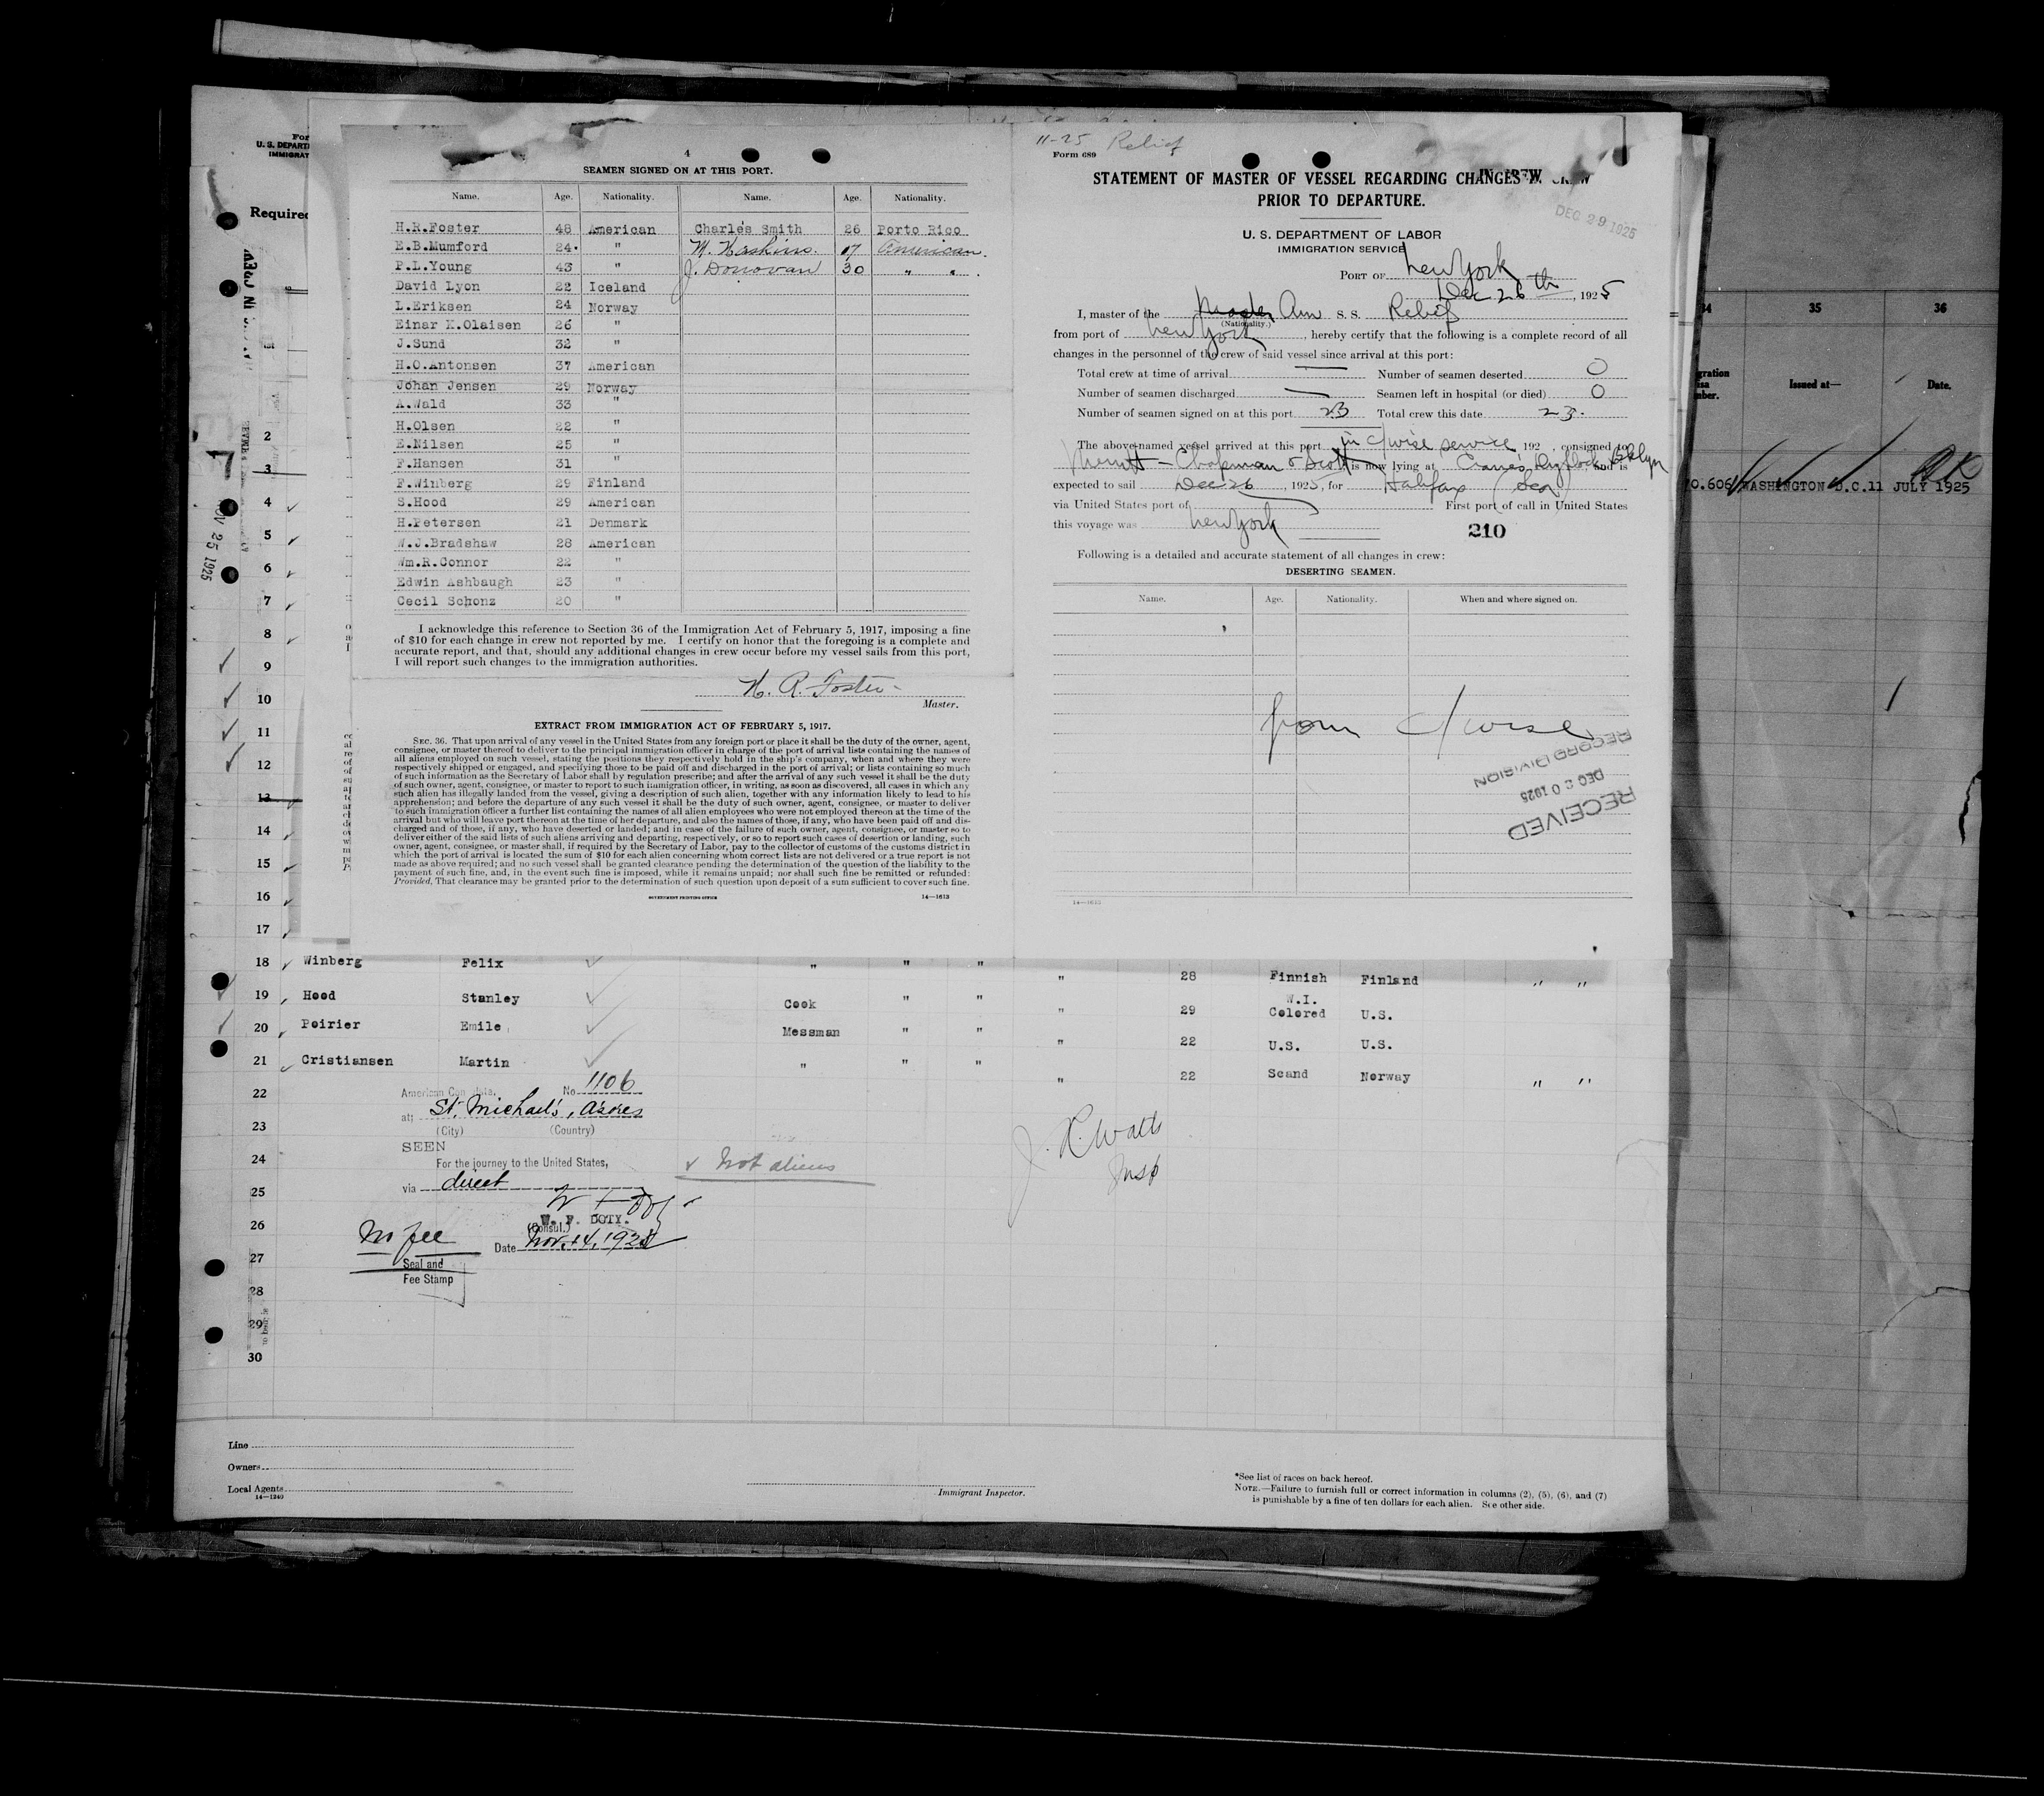 4
SEAMEN SIGNED ON AT THIS PORT.
Name. Age. Nationality. Name. Age. Nationality.
H.R.Foster 48 American Charles Smith 26 Porto Rico
E.B.Mumford 24 " W. Haskins. 17 American.
P.L.Young 43 " J. Donovan 30 " " .
David Lyon 22 Iceland
L.Eriksen 24 Norway
Einar K.Olaisen 26 "
J.Sund 32 "
H.O.Antonsen 37 American
Johan Jensen 29 Norway
A.Wald 33 "
H.Olsen 22 "
E.Nilsen 25 "
F.Hansen 31 "
F.Winberg 29 Finland
S.Hood 29 American
H.Petersen 21 Denmark
W.J.Bradshaw 28 American
Wm.R.Connor 22 "
Edwin Ashbaugh 23 "
Cecil Schonz 20 "
I acknowledge this reference to Section 36 of the Immigration Act of February 5, 1917, imposing a fine
of $10 for each change in crew not reported by me. I certify on honor that the foregoing is a complete and
accurate report, and that, should any additional changes in crew occur before my vessel sails from this port,
I will report such changes to the immigration authorities.
H. R. Foster
Master.
EXTRACT FROM IMMIGRATION ACT OF FEBRUARY 5, 1917.
SEC. 36. That upon arrival of any vessel in the United States from any foreign port or place it shall be the duty of the owner, agent,
consignee, or master thereof to deliver to the principal immigration officer in charge of the port of arrival lists containing the names of
all aliens employed on such vessel, stating the positions they respectively hold in the ship's company, when and where they were
respectively shipped or engaged, and specifying those to be paid off and discharged in the port of arrival; or lists containing so much
of such information as the Secretary of Labor shall by regulation prescribe; and after the arrival of any such vessel it shall be the duty
of such owner, agent, consignee, or master to report to such immigration officer, in writing, as soon as discovered, all cases in which any
such alien has illegally landed from the vessel, giving a description of such alien, together with any information likely to lead to his
apprehension; and before the departure of any such vessel it shall be the duty of such owner, agent, consignee, or master to deliver
to such immigration officer a further list containing the names of all alien employees who were not employed thereon at the time of the
arrival but who will leave port thereon at the time of her departure, and also the names of those, if any, who have been paid off and dis-
charged and of those, if any, who have deserted or landed; and in case of the failure of such owner, agent, consignee, or master so to
deliver either of the said lists of such aliens arriving and departing, respectively, or so to report such cases of desertion or landing, such
owner, agent, consignee, or master shall, if required by the Secretary of Labor, pay to the collector of customs of the customs district in
which the port of arrival is located the sum of $10 for each alien concerning whom correct lists are not delivered or a true report is not
made as above required; and no such vessel shall be granted clearance pending the determination of the question of the liability to the
payment of such fine, and, in the event such fine is imposed, while it remains unpaid; nor shall such fine be remitted or refunded:
Provided, That clearance may be granted prior to the determination of such question upon deposit of a sum sufficient to cover such fine.
GOVERNMENT PRINTING OFFICE 14—1613
11-25 Relief
Form 689
STATEMENT OF MASTER OF VESSEL REGARDING CHANGES IN CREW
PRIOR TO DEPARTURE.
DEC 29 1925
U. S. DEPARTMENT OF LABOR
IMMIGRATION SERVICE
PORT OF New York
Dec 26th, 1925
I, master of the Am S. S. Relief
(Nationality.)
from port of New York, hereby certify that the following is a complete record of all
changes in the personnel of the crew of said vessel since arrival at this port:
Total crew at time of arrival — Number of seamen deserted 0
Number of seamen discharged — Seamen left in hospital (or died) 0
Number of seamen signed on at this port 23 Total crew this date 23.
The above-named vessel arrived at this port in c/wise service 192 , consigned to
Merritt - Chapman & Scott is now lying at Crane's Dry Dock Bklyn and is
expected to sail Dec 26, 1925, for Halifax
via United States port of First port of call in United States
this voyage was New York
210
Following is a detailed and accurate statement of all changes in crew:
DESERTING SEAMEN.
Name. Age. Nationality. When and where signed on.
from c/wise
RECORD DIVISION
RECEIVED
14—1613
U. S. DEPART
IMMIGRAT
Required
NOV 25 1925
34 35 36
Issued at— Date.
0.606 WASHINGTON D.C. 11 JULY 1925
2
3
4
5
6
7
8
9
10
11
12
13
14
15
16
17
18 Winberg Felix " " " " 28 Finnish Finland " "
19 Hood Stanley Cook " " " 29 W.I. Colored U.S.
20 Poirier Emile Messman " " " 22 U.S. U.S.
21 Cristiansen Martin " " " " 22 Scand Norway " "
22
23
24
25
26
27
28
29
30
American Consulate. No 1106
at; St. Michael's, Azores
(City) (Country)
SEEN
For the journey to the United States,
via direct
W. F. DOTY.
(Consul.)
Date Nov. 14, 1925
No fee
Seal and
Fee Stamp
✓ not aliens
J. R. Watts
Insp
Line
Owners
Local Agents
14—1240
Immigrant Inspector.
*See list of races on back hereof.
NOTE.—Failure to furnish full or correct information in columns (2), (5), (6), and (7)
is punishable by a fine of ten dollars for each alien. See other side.